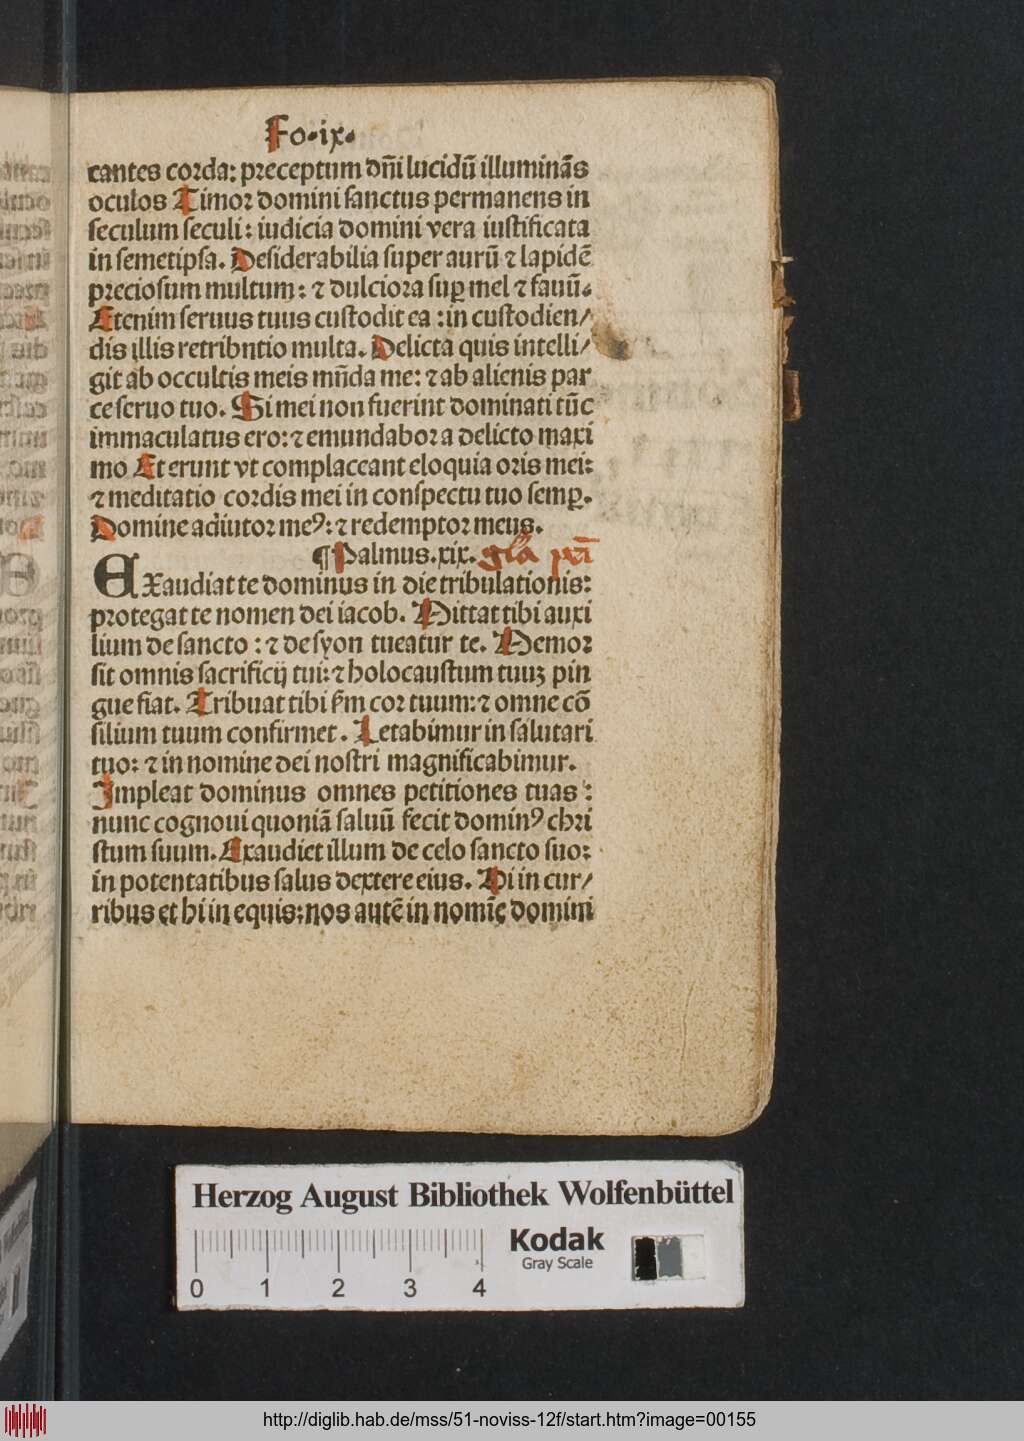 Fo.ix.
cantes corda: preceptum dñi lucidū illuminās
oculos Timor domini sanctus permanens in
seculum seculi: iudicia domini vera iustificata
in semetipsa. Desiderabilia super aurū ⁊ lapidē
preciosum multum: ⁊ dulciora suꝑ mel ⁊ fauū.
Etenim seruus tuus custodit ea: in custodien/
dis illis retribntio multa. Delicta quis intelli/
git ab occultis meis mūda me: ⁊ ab alienis par
ce seruo tuo. Si mei non fuerint dominati tūc
immaculatus ero: ⁊ emundabor a delicto maxi
mo Et erunt vt complaceant eloquia oris mei:
⁊ meditatio cordis mei in conspectu tuo semꝑ.
Domine adiutor meꝰ: ⁊ redemptor meus.
¶ Psalmus. xix. gl̄a pr̄i
EXaudiat te dominus in die tribulationis:
protegat te nomen dei iacob. Mittat tibi auxi
lium de sancto: ⁊ de syon tueatur te. Memor
sit omnis sacrificij tui: ⁊ holocaustum tuuȝ pin
gue fiat. Tribuat tibi ẜm cor tuum: ⁊ omne cō
silium tuum confirmet. Letabimur in salutari
tuo: ⁊ in nomine dei nostri magnificabimur.
Impleat dominus omnes petitiones tuas:
nunc cognoui quoniā saluū fecit dominꝰ chri
stum suum. Exaudiet illum de celo sancto suo:
in potentatibus salus dextere eius. Hi in cur/
ribus et hi in equis: nos autē in nomīe domini
Herzog August Bibliothek Wolfenbüttel
Kodak
Gray Scale
0 1 2 3 4
http://diglib.hab.de/mss/51-noviss-12f/start.htm?image=00155